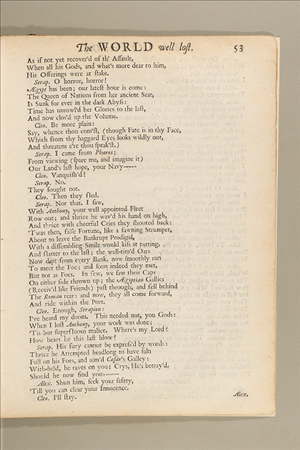 The WORLD well lost. 53
As if not yet recover'd of th' Assault,
When all his Gods, and what's more dear to him,
His Offerings were at stake.
Serap. O horror, horror!
Ægypt has been; our latest hour is come:
The Queen of Nations from her ancient Seat,
Is Sunk for ever in the dark Abyss:
Time has unrowl'd her Glories to the last,
And now clos'd up the Volume.
Cleo. Be more plain:
Say, whence thou com'st, (though Fate is in thy Face,
Which from thy haggard Eyes looks wildly out,
And threatens e're thou speak'st.)
Serap. I came from Pharos;
From viewing (spare me, and imagine it)
Our Land's last hope, your Navy-----
Cleo. Vanquish'd?
Serap. No.
They fought not.
Cleo. Then they fled.
Serap. Nor that. I saw,
With Anthony, your well appointed Fleet
Row out; and thrice he wav'd his hand on high,
And thrice with cheerful Cries they shouted back:
'Twas then, false Fortune, like a fawning Strumpet,
About to leave the Bankrupt Prodigal,
With a dissembling Smile would kiss at parting,
And flatter to the last; the well-tim'd Oars
Now dipt from every Bank, now smoothly run
To meet the Foe; and soon indeed they met,
But not as Foes. In few, we saw their Caps
On either side thrown up; the Ægyptian Gallies
(Receiv'd like Friends) past through, and fell behind
The Roman rear: and now, they all come forward,
And ride within the Port.
Cleo. Enough, Serapion:
I've heard my doom. This needed not, you Gods:
When I lost Anthony, your work was done;
'Tis but superfluous malice. Where's my Lord?
How bears he this last blow?
Serap. His fury cannot be express'd by words:
Thrice he Attempted headlong to have faln
Full on his Foes, and aim'd at Cæsar's Galley:
With-held, he raves on you; Crys, He's betray'd.
Should he now find you------
Alex. Shun him, seek your safety,
'Till you can clear your Innocence.
Cleo. I'll stay.
Alex.